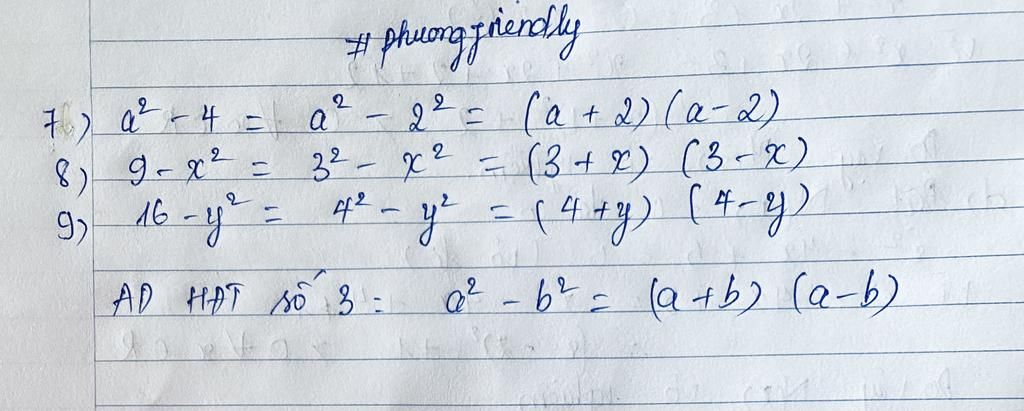 # phuongfriendly
7) a² - 4 = a² - 2² = (a + 2) (a - 2)
8) 9 - x² = 3² - x² = (3 + x) (3 - x)
9) 16 - y² = 4² - y² = (4 + y) (4 - y)
AD HĐT số 3 : a² - b² = (a + b) (a - b)